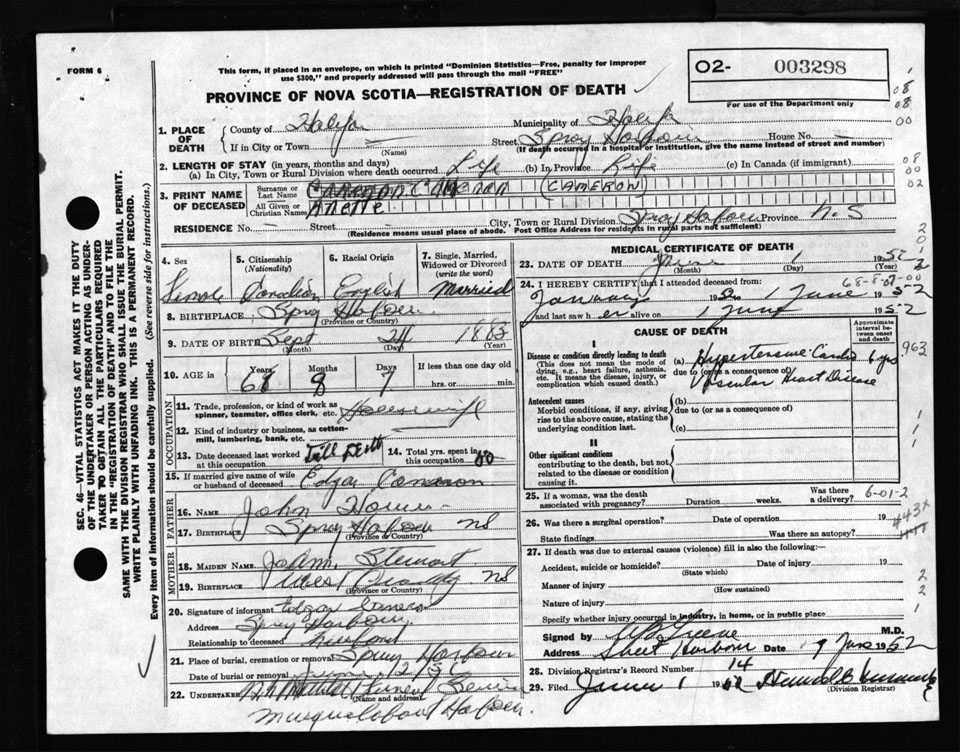 FORM 6
This form, if placed in an envelope, on which is printed "Dominion Statistics—Free, penalty for improper
use $300," and properly addressed will pass through the mail "FREE"
PROVINCE OF NOVA SCOTIA—REGISTRATION OF DEATH
O2- 003298
For use of the Department only
1. PLACE OF DEATH
County of Halifax
Municipality of Halifax
If in City or Town
(Name)
Street Spry Harbour House No.
(If death occurred in a hospital or institution, give the name instead of street and number)
2. LENGTH OF STAY (in years, months and days)
(a) In City, Town or Rural Division where death occurred Life (b) In Province Life (c) In Canada (if immigrant)
3. PRINT NAME OF DECEASED
Surname or Last Name (CAMERON)
All Given or Christian Names Anette
RESIDENCE No. — Street City, Town or Rural Division Spry Harbour Province N.S
(Residence means usual place of abode. Post Office Address for residents in rural parts not sufficient)
4. Sex
Female
5. Citizenship
(Nationality)
Canadian
6. Racial Origin
English
7. Single, Married,
Widowed or Divorced
(write the word)
Married
8. BIRTHPLACE Spry Harbour
(Province or Country)
9. DATE OF BIRTH Sept 24 1883
(Month) (Day) (Year)
10. AGE in
Years 68
Months 8
Days 7
If less than one day old
hrs. or min.
OCCUPATION
11. Trade, profession, or kind of work as
spinner, teamster, office clerk, etc. Housewife
12. Kind of industry or business, as cotten-
mill, lumbering, bank, etc.
13. Date deceased last worked
at this occupation Till Death
14. Total yrs. spent in
this occupation
15. If married give name of wife
or husband of deceased Edgar Cameron
FATHER
16. NAME John
17. BIRTHPLACE Spry Harbour NS
(Province or Country)
MOTHER
18. MAIDEN NAME Stewart
19. BIRTHPLACE West Quoddy NS
(Province or Country)
20. Signature of informant Edgar Cameron
Address Spry Harbour
Relationship to deceased Husband
21. Place of burial, cremation or removal Spry Harbour
Date of burial or removal
22. UNDERTAKER Funeral Service
(Name and address)
Musquodoboit Harbour.
MEDICAL CERTIFICATE OF DEATH
23. DATE OF DEATH June 1 1952
(Month) (Day) (Year)
24. I HEREBY CERTIFY that I attended deceased from:
68-8-07-00
January 1952 to 1 June 1952
and last saw her alive on 1 June 1952
CAUSE OF DEATH
Approximate interval between onset and death
I
Disease or condition directly leading to death
(This does not mean the mode of
dying, e.g., heart failure, asthma,
etc. It means the disease, injury, or
complication which caused death.)
(a) Hypertensive Cardio 6 yrs
due to (or as a consequence of)
Vascular Heart Disease
Antecedent causes
Morbid conditions, if any, giving
rise to the above cause, stating the
underlying condition last.
(b)
due to (or as a consequence of)
(c)
II
Other significant conditions
contributing to the death, but not
related to the disease or condition
causing it.
25. If a woman, was the death
associated with pregnancy? Duration weeks. Was there a delivery?
6-01-2
26. Was there a surgical operation? Date of operation 19
State findings Was there an autopsy?
443X
27. If death was due to external causes (violence) fill in also the following:—
Accident, suicide or homicide? Date of injury 19
(State which)
Manner of injury
(How sustained)
Nature of injury
Specify whether injury occurred in industry, in home, or in public place
Signed by M.D.
Address Sheet Harbour Date 9 June 1952
28. Division Registrar's Record Number 14
29. Filed 19
(Division Registrar)
SEC. 46—VITAL STATISTICS ACT MAKES IT THE DUTY
OF THE UNDERTAKER OR PERSON ACTING AS UNDER-
TAKER TO OBTAIN ALL THE PARTICULARS REQUIRED
IN THE "REGISTRATION OF DEATH" AND TO FILE THE
SAME WITH THE DIVISION REGISTRAR WHO SHALL ISSUE THE BURIAL PERMIT.
WRITE PLAINLY WITH UNFADING INK. THIS IS A PERMANENT RECORD.
Every item of information should be carefully supplied. (See reverse side for instructions.)